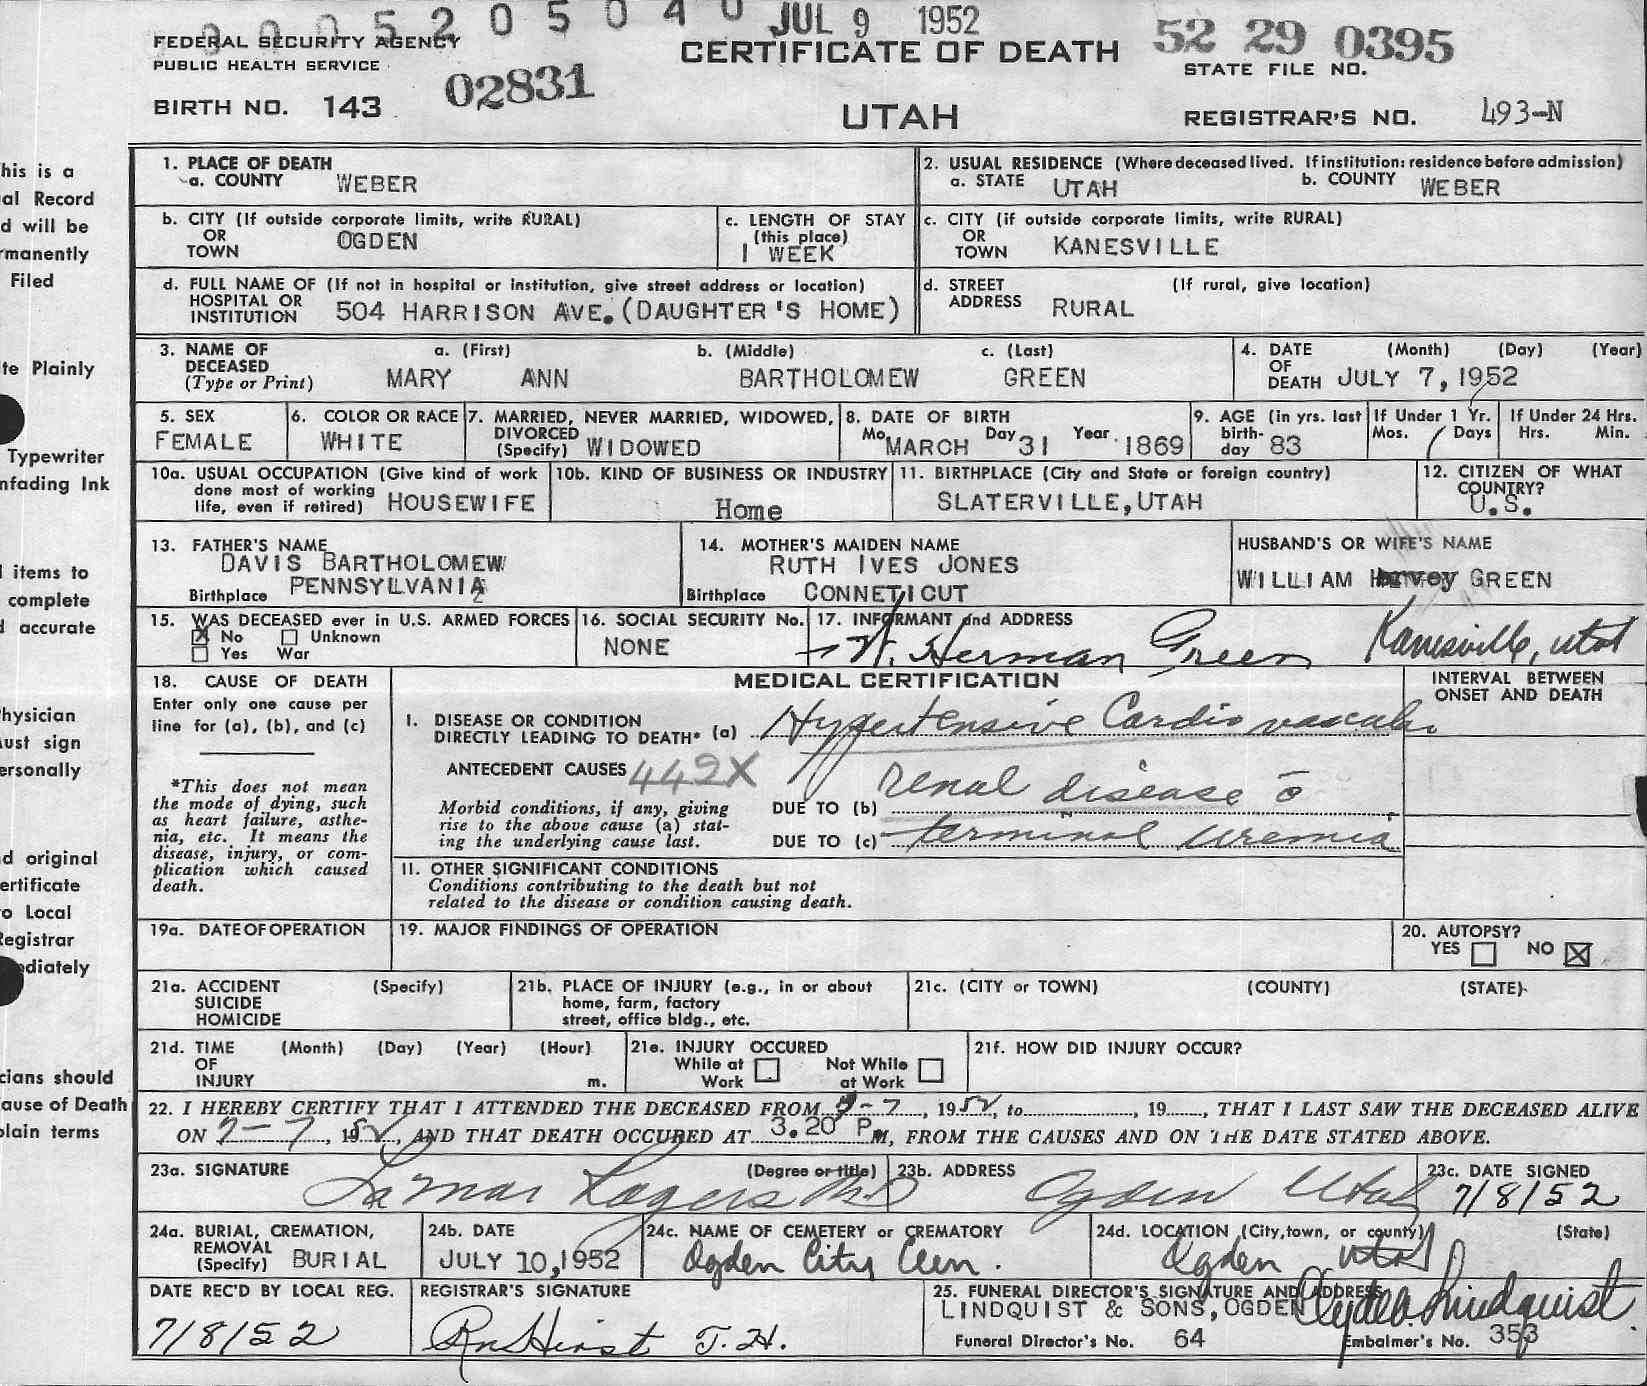 00052050 40 JUL 9 1952
FEDERAL SECURITY AGENCY
PUBLIC HEALTH SERVICE
CERTIFICATE OF DEATH
52 29 0395
STATE FILE NO.
BIRTH NO. 143 02831
UTAH
REGISTRAR'S NO. 493-N
his is a
al Record
d will be
rmanently
Filed
te Plainly
Typewriter
nfading Ink
l items to
complete
d accurate
hysician
ust sign
ersonally
d original
ertificate
o Local
Registrar
ediately
cians should
ause of Death
plain terms
1. PLACE OF DEATH
a. COUNTY WEBER
2. USUAL RESIDENCE (Where deceased lived. If institution: residence before admission)
a. STATE UTAH b. COUNTY WEBER
b. CITY (If outside corporate limits, write RURAL)
OR
TOWN OGDEN
c. LENGTH OF STAY
(this place)
1 WEEK
c. CITY (if outside corporate limits, write RURAL)
OR
TOWN KANESVILLE
d. FULL NAME OF (If not in hospital or institution, give street address or location)
HOSPITAL OR
INSTITUTION 504 HARRISON AVE. (DAUGHTER'S HOME)
d. STREET (If rural, give location)
ADDRESS RURAL
3. NAME OF a. (First) b. (Middle) c. (Last)
DECEASED
(Type or Print) MARY ANN BARTHOLOMEW GREEN
4. DATE (Month) (Day) (Year)
OF
DEATH JULY 7, 1952
5. SEX
FEMALE
6. COLOR OR RACE
WHITE
7. MARRIED, NEVER MARRIED, WIDOWED,
DIVORCED
(Specify) WIDOWED
8. DATE OF BIRTH
Mo MARCH Day 31 Year 1869
9. AGE (in yrs. last
birth-
day 83
If Under 1 Yr.
Mos. Days
If Under 24 Hrs.
Hrs. Min.
10a. USUAL OCCUPATION (Give kind of work
done most of working
life, even if retired) HOUSEWIFE
10b. KIND OF BUSINESS OR INDUSTRY
Home
11. BIRTHPLACE (City and State or foreign country)
SLATERVILLE, UTAH
12. CITIZEN OF WHAT
COUNTRY?
U.S.
13. FATHER'S NAME
DAVIS BARTHOLOMEW
Birthplace PENNSYLVANIA
14. MOTHER'S MAIDEN NAME
RUTH IVES JONES
Birthplace CONNETICUT
HUSBAND'S OR WIFE'S NAME
WILLIAM Harvey GREEN
15. WAS DECEASED ever in U.S. ARMED FORCES
No Unknown
Yes War
16. SOCIAL SECURITY No.
NONE
17. INFORMANT and ADDRESS
W. Herman Green Kanesville, Utah
18. CAUSE OF DEATH
Enter only one cause per
line for (a), (b), and (c)
*This does not mean
the mode of dying, such
as heart failure, asthe-
nia, etc. It means the
disease, injury, or com-
plication which caused
death.
MEDICAL CERTIFICATION
INTERVAL BETWEEN
ONSET AND DEATH
I. DISEASE OR CONDITION
DIRECTLY LEADING TO DEATH* (a) Hypertensive Cardio vascular
ANTECEDENT CAUSES 442X
Morbid conditions, if any, giving
rise to the above cause (a) stat-
ing the underlying cause last.
DUE TO (b) renal disease c̄
DUE TO (c) terminal uremia
11. OTHER SIGNIFICANT CONDITIONS
Conditions contributing to the death but not
related to the disease or condition causing death.
19a. DATE OF OPERATION
19. MAJOR FINDINGS OF OPERATION
20. AUTOPSY?
YES NO
21a. ACCIDENT (Specify)
SUICIDE
HOMICIDE
21b. PLACE OF INJURY (e.g., in or about
home, farm, factory
street, office bldg., etc.
21c. (CITY or TOWN) (COUNTY) (STATE)
21d. TIME (Month) (Day) (Year) (Hour)
OF
INJURY m.
21e. INJURY OCCURED
While at Not While
Work at Work
21f. HOW DID INJURY OCCUR?
22. I HEREBY CERTIFY THAT I ATTENDED THE DECEASED FROM 7-7, 1952, to, 19, THAT I LAST SAW THE DECEASED ALIVE
ON 7-7, 1952, AND THAT DEATH OCCURED AT 3.20 P M, FROM THE CAUSES AND ON THE DATE STATED ABOVE.
23a. SIGNATURE (Degree or title)
LaMar Rogers MD
23b. ADDRESS
Ogden Utah
23c. DATE SIGNED
7/8/52
24a. BURIAL, CREMATION,
REMOVAL
(Specify) BURIAL
24b. DATE
JULY 10, 1952
24c. NAME OF CEMETERY or CREMATORY
Ogden City Cem.
24d. LOCATION (City, town, or county) (State)
Ogden Utah
DATE REC'D BY LOCAL REG.
7/8/52
REGISTRAR'S SIGNATURE
25. FUNERAL DIRECTOR'S SIGNATURE AND ADDRESS
LINDQUIST & SONS, OGDEN Clyde Lindquist
Funeral Director's No. 64 Embalmer's No. 353